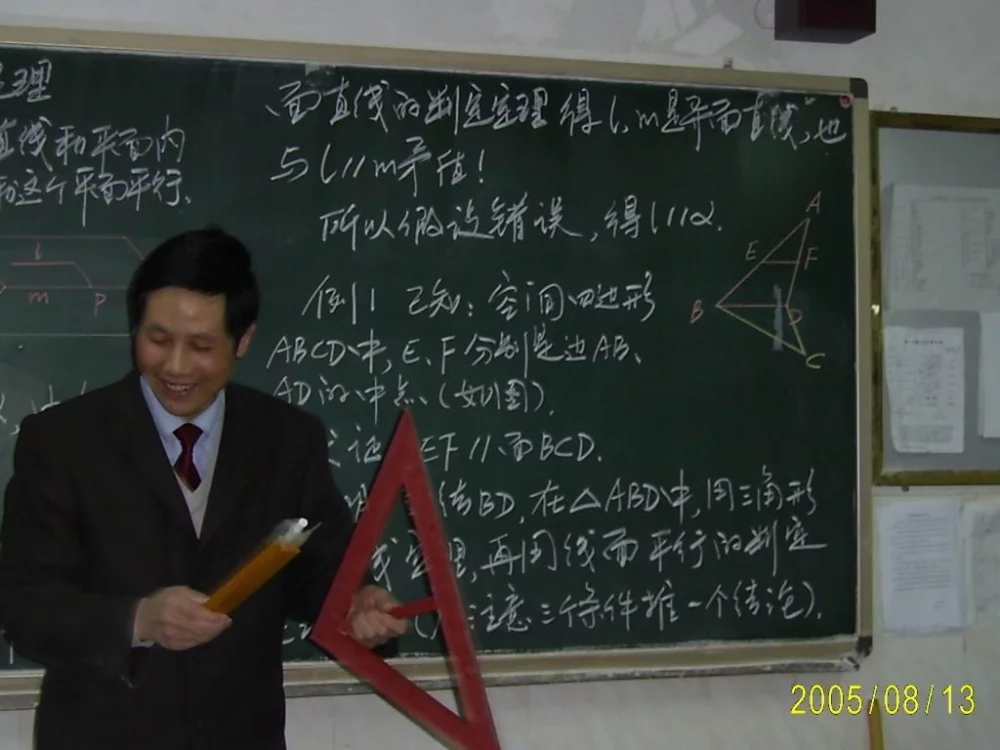 定理
直线和平面内
和这个平面平行.
l
m P
面直线的判定定理得l,m是异面直线,也
与l//m矛盾!
所以假设错误,得l//α.
例1 已知:空间四边形
ABCD中,E、F分别是边AB、
AD的中点(如图).
求证 EF//面BCD.
连结BD,在△ABD中,用三角形
线定理,再用线面平行的判定
注意三个条件推一个结论).
A
E F
B D
C
2005/08/13